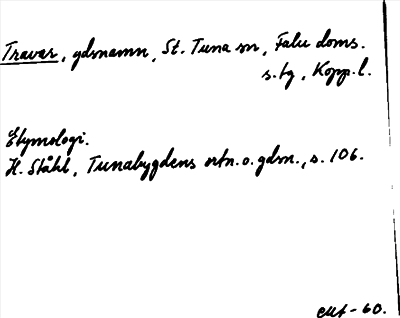 Travar, gdsnamn, St. Tuna sn, Falu doms.
s. tg, Kopp. l.
Etymologi.
H. Ståhl, Tunabygdens ortn. o. gdsn., s. 106.
- 60.